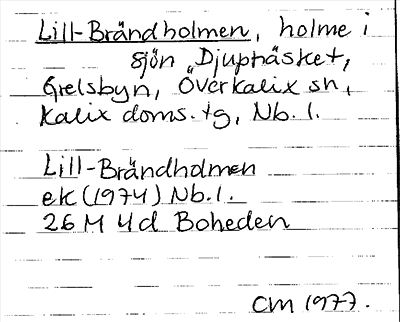 Lill-Brändholmen, holme i
sjön Djupträsket,
Grelsbyn, Överkalix sn,
Kalix doms. tg, Nb. l.
Lill-Brändholmen
ek (1974) Nb. l.
26 M 4d Boheden
CM 1977.